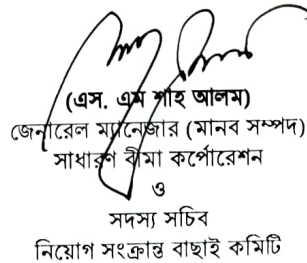 (এস. এম শাহ আলম)
জেনারেল ম্যানেজার (মানব সম্পদ)
সাধারণ বীমা কর্পোরেশন
ও
সদস্য সচিব
নিয়োগ সংক্রান্ত বাছাই কমিটি